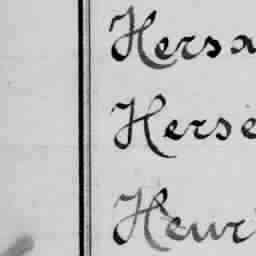 Hersa
Herse
Henri